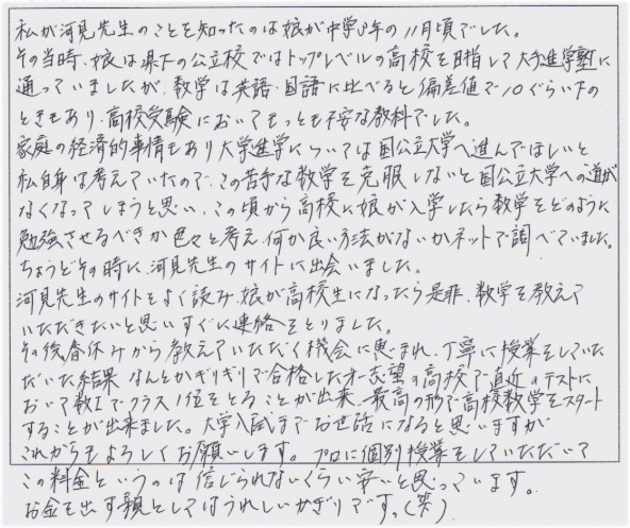 私が河見先生のことを知ったのは娘が中学3年の11月頃でした。
その当時、娘は県下の公立校ではトップレベルの高校を目指して大手進学塾に
通っていましたが、数学は英語・国語に比べると偏差値で10ぐらい下の
ときもあり、高校受験においてもっとも不安な教科でした。
家庭の経済的事情もあり大学進学については国公立大学へ進んでほしいと
私自身は考えていたので、この苦手な数学を克服しないと国公立大学への道が
なくなってしまうと思い、この頃から高校に娘が入学したら数学をどのように
勉強させるべきか色々と考え、何か良い方法がないかネットで調べていました。
ちょうどその時に、河見先生のサイトに出会いました。
河見先生のサイトをよく読み、娘が高校生になったら是非、数学を教えて
いただきたいと思いすぐに連絡をとりました。
その後春休みから教えていただく機会に恵まれ、丁寧に授業をしていた
だいた結果 なんとかギリギリで合格した才一志望の高校で直近のテストに
おいて数Iでクラス1位をとることが出来、最高の形で高校数学をスタート
することが出来ました。大学入試までお世話になると思いますが
これからもよろしくお願いします。プロに個別授業をしていただいて
この料金というのは信じられないくらい安いと思っています。
お金を出す親としてはうれしいかぎりです。(笑)